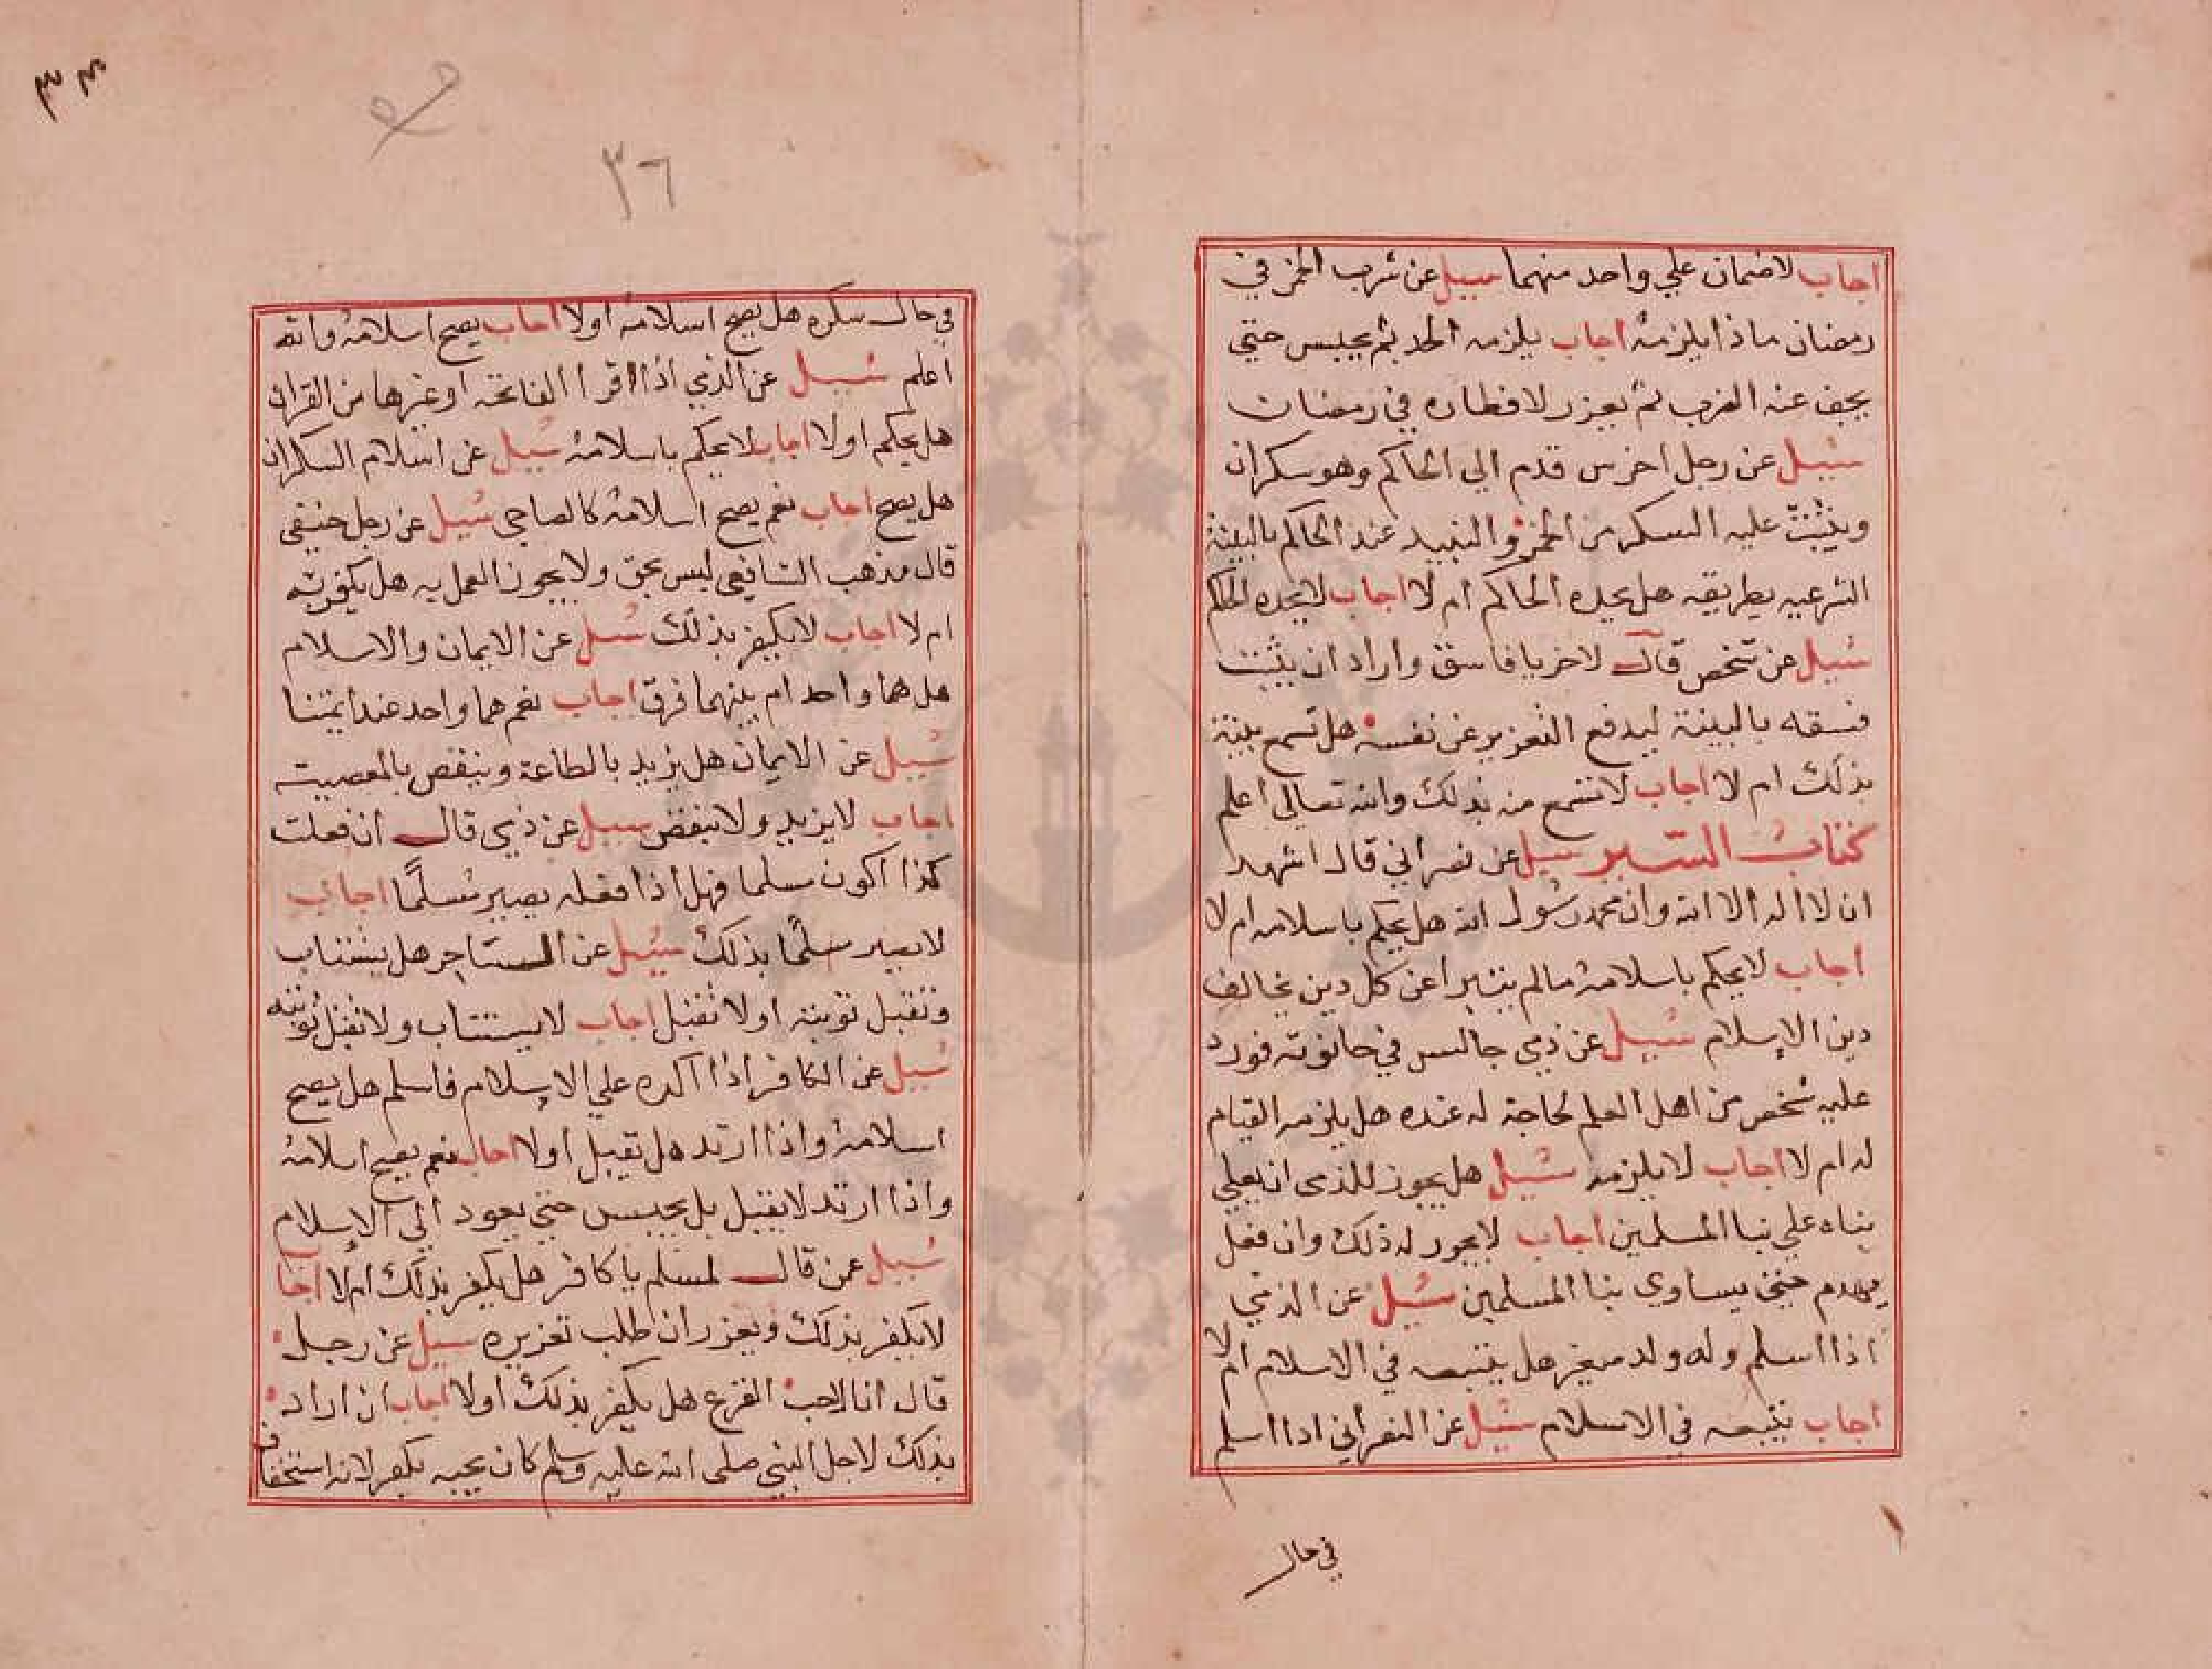 اجاب لاضمان علي واحد منهما سيل عن شرب الخمر في
رمضان ماذا يلزمه اجاب يلزمه الحد ثم يحبس حتي
يجف عنه الضرب ثم يعزر لافطاره في رمضان
سيل عن رجل اخرس قدم الي الحاكم وهو سكران
ويثبت عليه السكر من الخمر و النبيد عند الحاكم بالبينة
الشرعيه بطريقه هل يحده الحاكم ام لا اجاب لايحده الحاكم
سيل عن شخص قال لاخر يا فاسق واراد ان يثبت
فسقه بالبينة ليدفع التعزير عن نفسه هل تسمع بينة
بذلك ام لا اجاب لاتسمع منه بذلك والله تعالي اعلم
كتاب السير سيل عن نصراني قال اشهد
ان لا اله الا الله وان محمد رسول الله هل يحكم باسلامه ام لا
اجاب لايحكم باسلامه مالم يتبرا عن كل دين يخالف
دين الاسلام سيل عن ذمي جالس في حانوته فورد
عليه شخص من اهل العلم لحاجة له عنده هل يلزمه القيام
له ام لا اجاب لايلزمه سيل هل يجوز للذمي ان يعلي
بناه علي بنا المسلمين اجاب لايجوز له ذلك وان فعل
يهدم حتي يساوي بنا المسلمين سيل عن الذمي
اذا اسلم وله ولد صغير هل يتبعه في الاسلام ام لا
اجاب يتبعه في الاسلام سيل عن النصراني اذا اسلم
في حال
٣٤
٣٦
في حال سكره هل يصح اسلامه اولا اجاب يصح اسلامه والله
اعلم سيل عن الذمي اذا اقرا الفاتحة او غيرها من القران
هل يحكم اولا اجاب لايحكم باسلامه سيل عن اسلام السكران
هل يصح اجاب نعم يصح اسلامه كالصاحي سيل عن رجل حنيفي
قال مذهب الشافعي ليس بحق ولا يجوز العمل به هل يكفر به
ام لا اجاب لايكفر بذلك سيل عن الايمان والاسلام
هل هما واحد ام بينهما فرق اجاب نعم هما واحد عند ايمتنا
سيل عن الايمان هل يزيد بالطاعة وينقص بالمعصيت
اجاب لايزيد ولا ينقص سيل عن ذمي قال ان فعلت
كذا اكون مسلما فهل اذا فعله يصير مسلما اجاب
لايصير مسلما بذلك سيل عن الساحر هل يستتاب
وتقبل توبته اولا تقبل اجاب لايستتاب ولا تقبل توبته
سيل عن الكافر اذا اكره علي الاسلام فاسلم هل يصح
اسلامه واذا ارتد هل تقبل اولا اجاب نعم يصح اسلامه
واذا ارتد لايقبل بل يحبس حتي يعود الي الاسلام
سيل عمن قال لمسلم يا كافر هل يكفر بذلك ام لا اجاب
لايكفر بذلك ويعزر ان طلب تعزيره سيل عن رجل
قال انا لا احب القرع هل يكفر بذلك اولا اجاب ان اراد
بذلك لاجل النبي صلي الله عليه وسلم كان يحبه يكفر لانه استخفاف